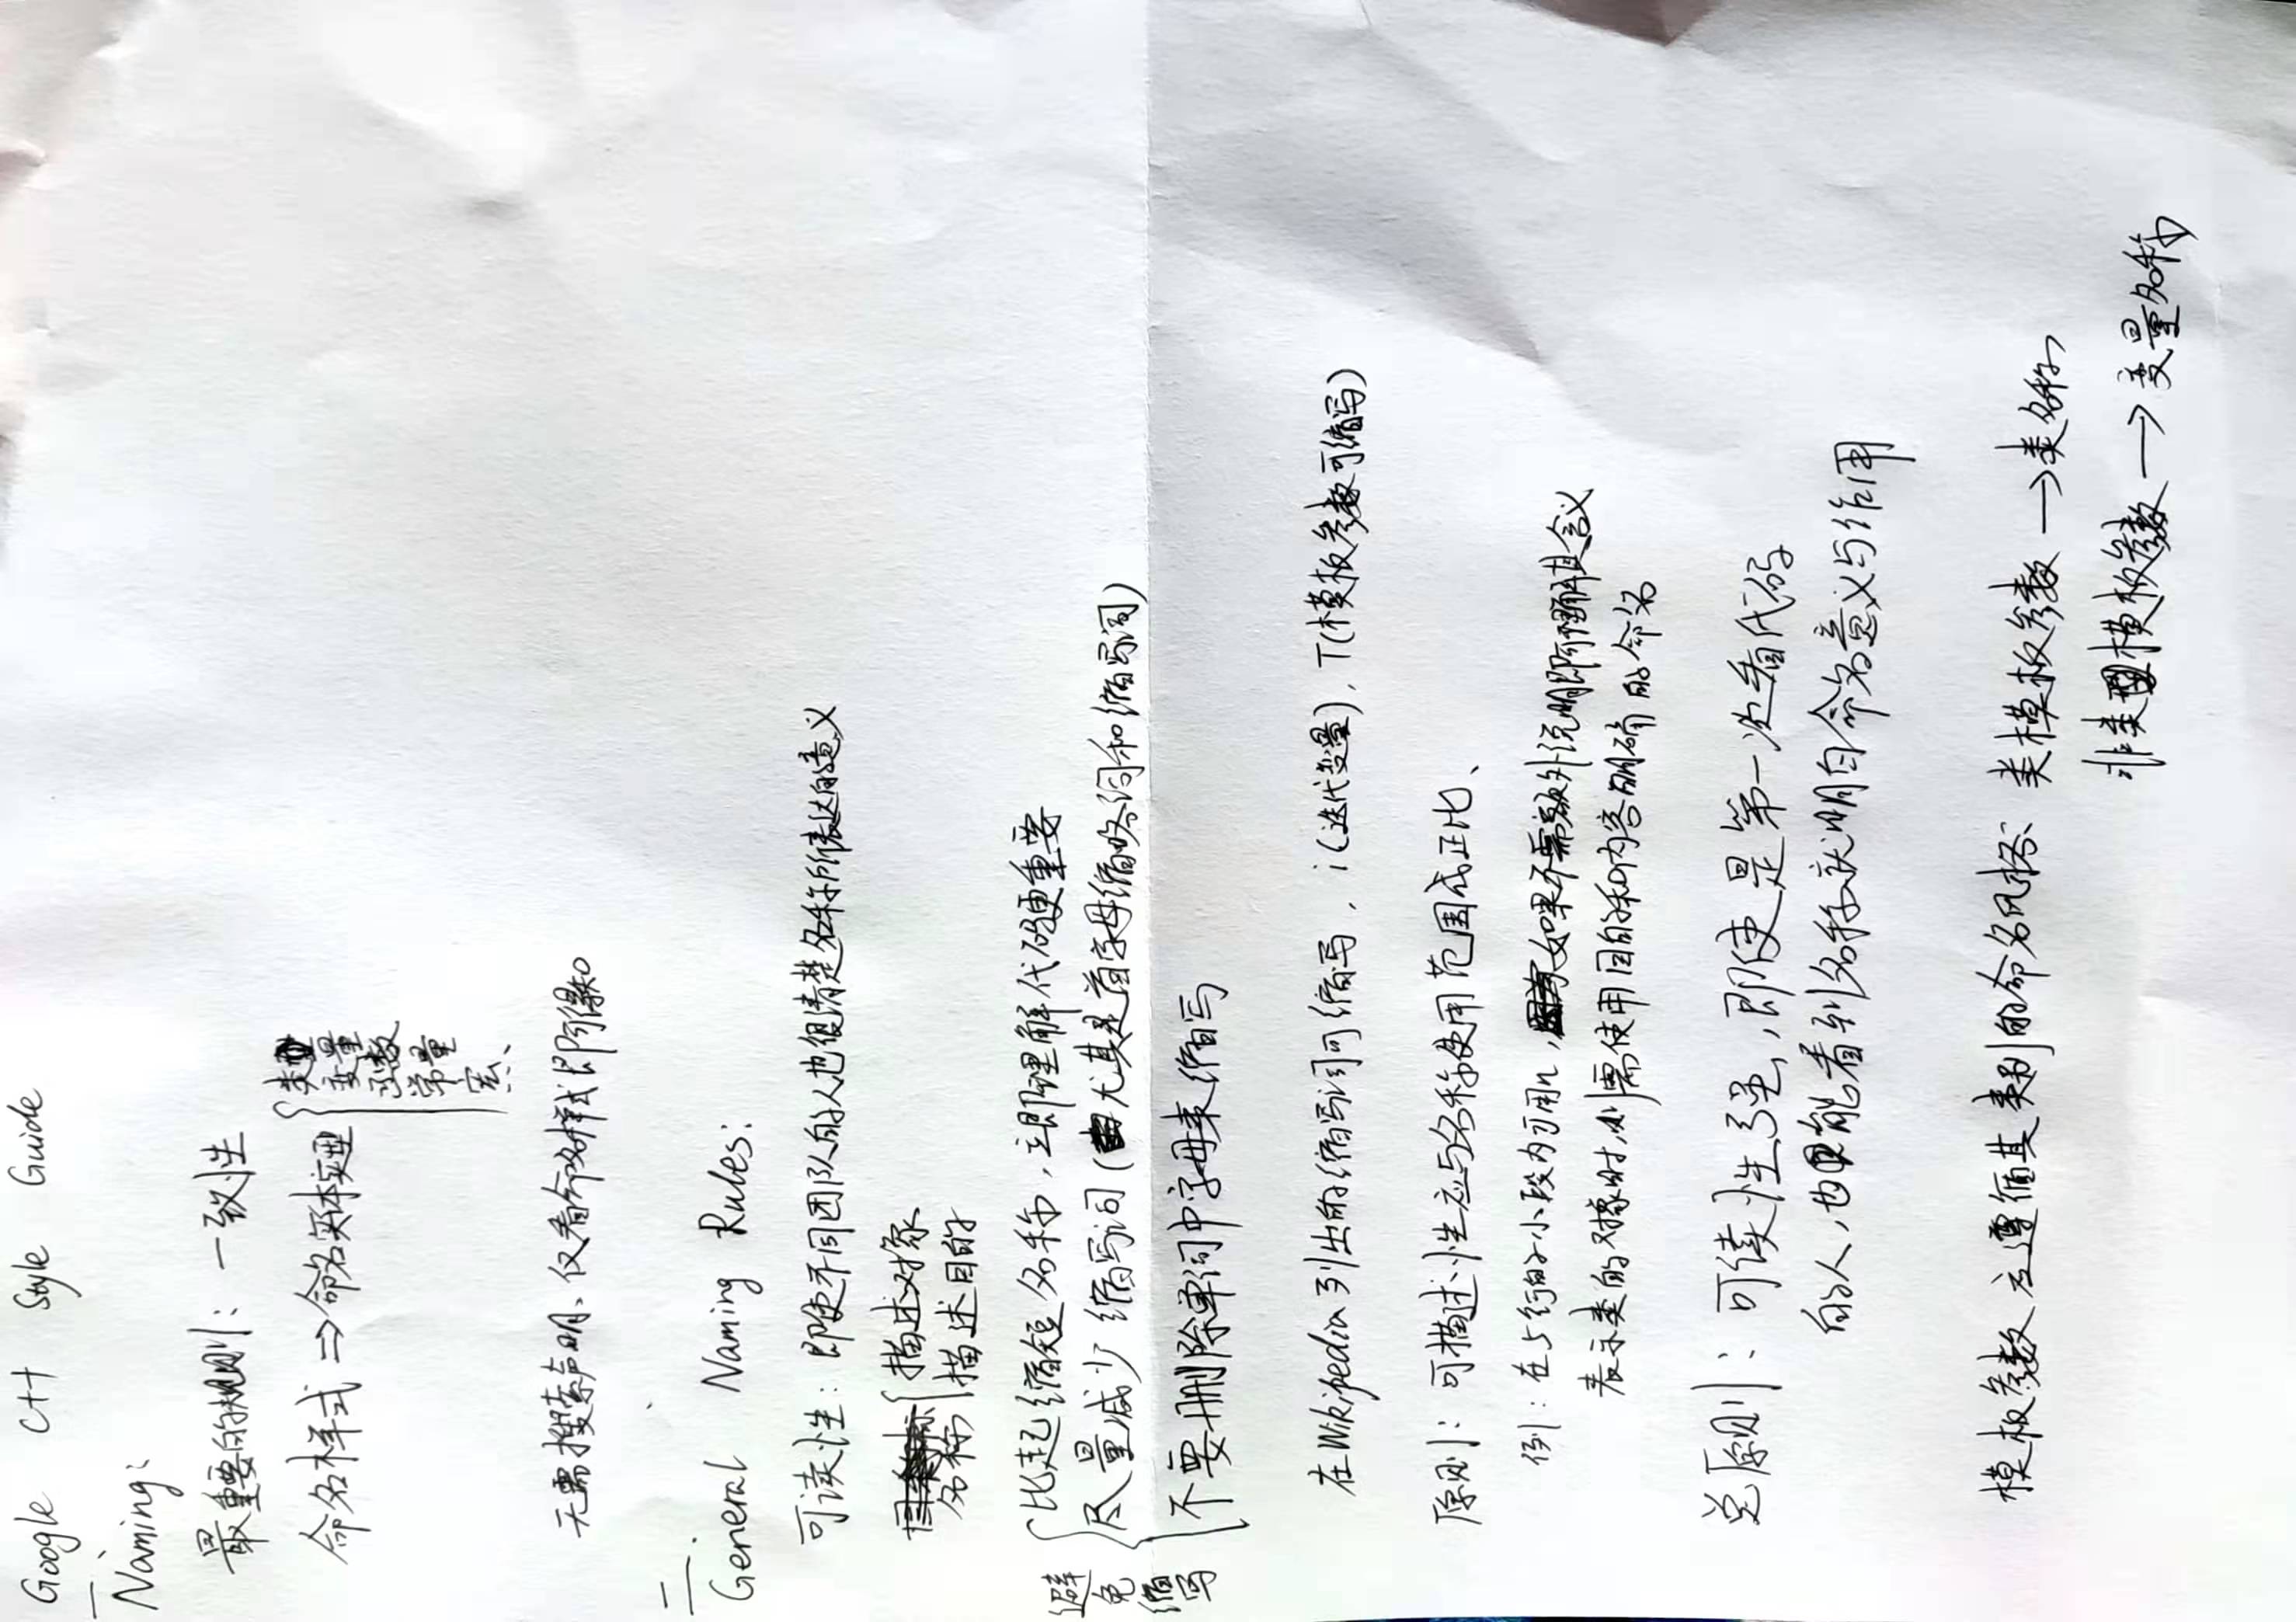 Google C++ Style Guide
一、
Naming:
最重要的规则：一致性
命名样式 ⇒ 命名实体类型 { 类型
变量
函数
常量
宏、
无需搜索声明、仅看命名样式即可得知。
二、
General Naming Rules:
可读性：即使不同团队的人也很清楚名称所表达的意义
名称 { 描述对象
描述目的
避免缩写 { 比起缩短名称，立即理解代码更重要
尽量减少缩写词（尤其是首字母缩略词和缩写词）
不要删除单词中字母来缩写
在Wikipedia列出的缩写词可缩写，i(迭代变量)，T(模板参数可缩写)
原则：可描述性应与名称使用范围成正比、
例：在5行的小段内可用n，如果不需额外说明即可理解其含义
表示类的对象时，则需使用目的和内容明确的命名
总原则：可读性强，即使是第一次看代码
的人，也能看到名称就明白命名意义与作用
模板参数应遵循其类别的命名风格： 类模板参数 → 类名称
非类模板参数 → 变量名称